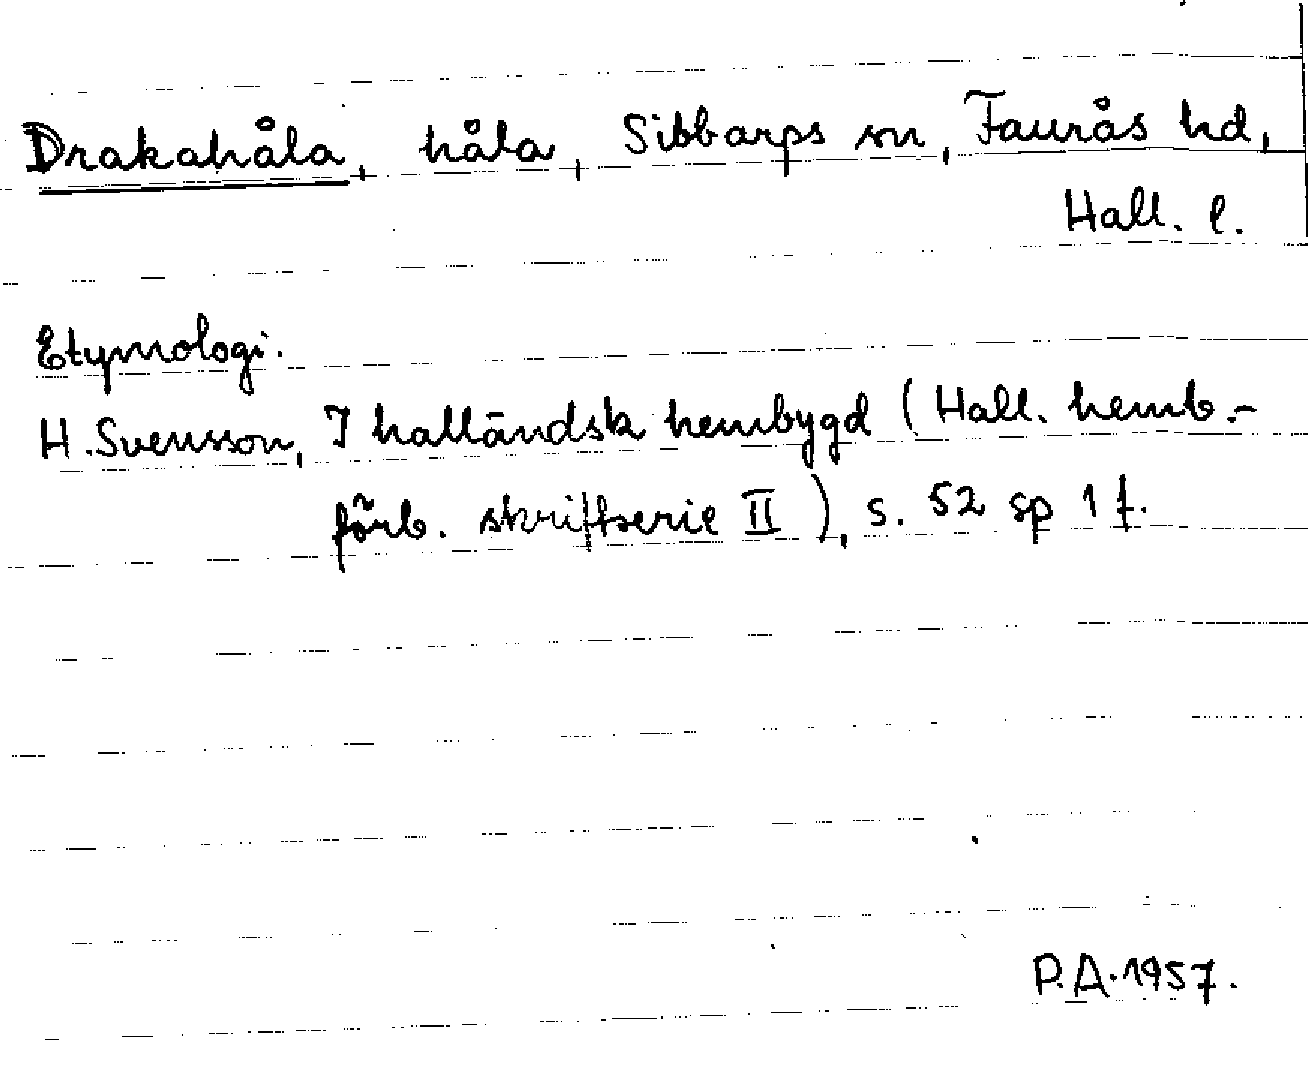 Drakahåla, håla, Sibbarps sn, Faurås hd,
Hall. l.
Etymologi.
H. Svensson, I halländsk hembygd (Hall. hemb.-
förb. skriftserie II), s. 52 sp 1 f.
P.A. 1957.